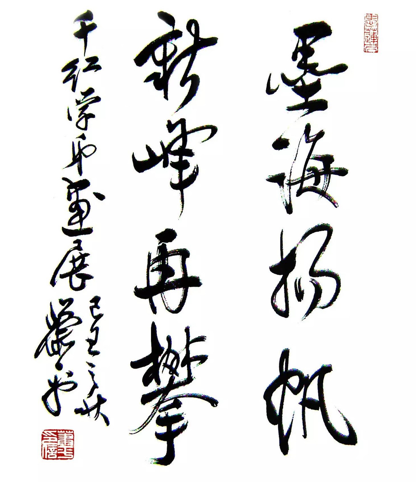 墨海扬帆
新峰再攀
千红学弟画展
己丑之秋